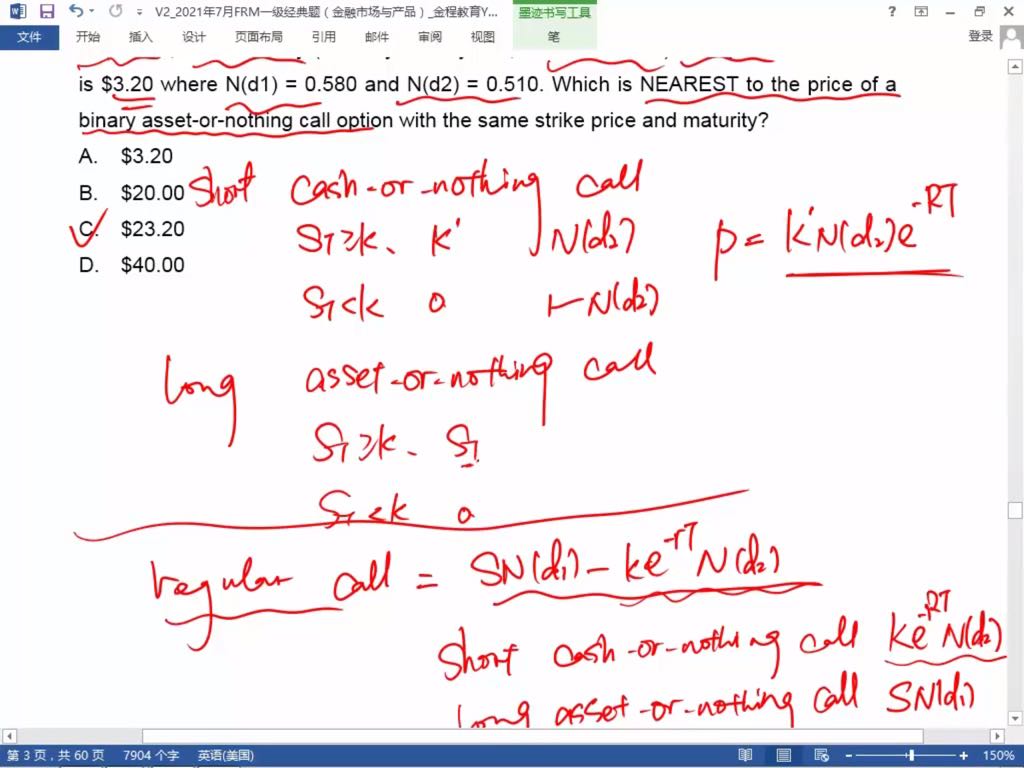 V2_2021年7月FRM一级经典题（金融市场与产品）_金程教育Y...
墨迹书写工具
文件 开始 插入 设计 页面布局 引用 邮件 审阅 视图 笔 登录
is $3.20 where N(d1) = 0.580 and N(d2) = 0.510. Which is NEAREST to the price of a
binary asset-or-nothing call option with the same strike price and maturity?
A. $3.20
B. $20.00
C. $23.20
D. $40.00
Short cash-or-nothing call
S_T≥K、 K' N(d₂) p = K'N(d₂)e^-RT
S_T<K 0 1-N(d₂)
long asset-or-nothing call
S_T≥K、 S_T
S_T<K 0
regular call = SN(d₁) - Ke^-rT N(d₂)
Short cash-or-nothing call Ke^-RT N(d₂)
long asset-or-nothing call SN(d₁)
第 3 页，共 60 页 7904 个字 英语(美国) 150%